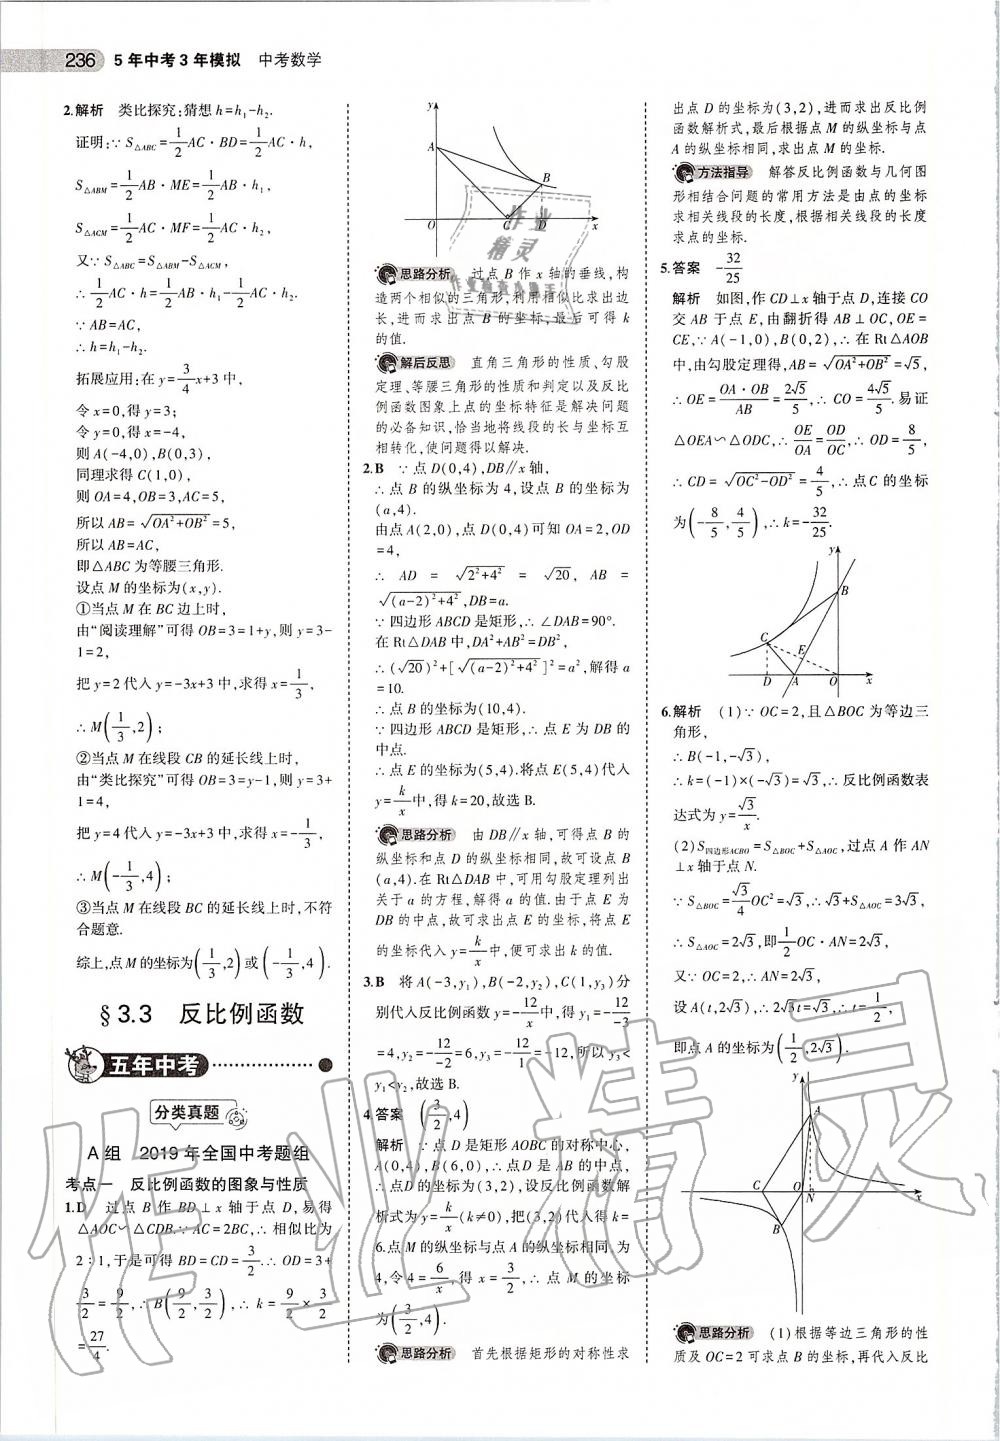 236 5年中考3年模拟 中考数学
2.解析 类比探究:猜想h=h₁-h₂.
证明:∵S△ABC=1/2AC·BD=1/2AC·h,
S△ABM=1/2AB·ME=1/2AB·h₁,
S△ACM=1/2AC·MF=1/2AC·h₂,
又∵S△ABC=S△ABM-S△ACM,
∴1/2AC·h=1/2AB·h₁-1/2AC·h₂.
∵AB=AC,
∴h=h₁-h₂.
拓展应用:在y=3/4x+3中,
令x=0,得y=3;
令y=0,得x=-4,
则A(-4,0),B(0,3),
同理求得C(1,0),
则OA=4,OB=3,AC=5,
所以AB=√(OA²+OB²)=5,
所以AB=AC,
即△ABC为等腰三角形.
设点M的坐标为(x,y).
①当点M在BC边上时,
由“阅读理解”可得OB=3=1+y,则y=3-
1=2,
把y=2代入y=-3x+3中,求得x=1/3,
∴M(1/3,2);
②当点M在线段CB的延长线上时,
由“类比探究”可得OB=3=y-1,则y=3+
1=4,
把y=4代入y=-3x+3中,求得x=-1/3,
∴M(-1/3,4);
③当点M在线段BC的延长线上时,不符
合题意.
综上,点M的坐标为(1/3,2)或(-1/3,4).
§3.3 反比例函数
五年中考
分类真题
A组 2019年全国中考题组
考点一 反比例函数的图象与性质
1.D 过点B作BD⊥x轴于点D,易得
△AOC∽△CDB.∵AC=2BC,∴相似比为
2∶1,于是可得BD=CD=3/2.∴OD=3+
3/2=9/2,∴B(9/2,3/2),∴k=9/2×3/2
=27/4.
y
A
B
O
C
D
x
思路分析 过点B作x轴的垂线,构
造两个相似的三角形,利用相似比求出边
长,进而求出点B的坐标,最后可得k
的值.
解后反思 直角三角形的性质、勾股
定理、等腰三角形的性质和判定以及反比
例函数图象上点的坐标特征是解决问题
的必备知识,恰当地将线段的长与坐标互
相转化,使问题得以解决.
2.B ∵点D(0,4),DB∥x轴,
∴点B的纵坐标为4,设点B的坐标为
(a,4).
由点A(2,0),点D(0,4)可知OA=2,OD
=4,
∴AD=√(2²+4²)=√20,AB=
√((a-2)²+4²),DB=a.
∵四边形ABCD是矩形,∴∠DAB=90°.
在Rt△DAB中,DA²+AB²=DB²,
∴(√20)²+[√((a-2)²+4²)]²=a²,解得a
=10.
∴点B的坐标为(10,4).
∵四边形ABCD是矩形,∴点E为DB的
中点.
∴点E的坐标为(5,4).将点E(5,4)代入
y=k/x中,得k=20,故选B.
思路分析 由DB∥x轴,可得点B的
纵坐标和点D的纵坐标相同,故可设点B
(a,4).在Rt△DAB中,可用勾股定理列出
关于a的方程,解得a的值.由于点E为
DB的中点,故可求出点E的坐标,将点E
的坐标代入y=k/x中,便可求出k的值.
3.B 将A(-3,y₁),B(-2,y₂),C(1,y₃)分
别代入反比例函数y=-12/x中,得y₁=-12/-3
=4,y₂=-12/-2=6,y₃=-12/1=-12,所以y₃<
y₁<y₂,故选B.
4.答案 (3/2,4)
解析 ∵点D是矩形AOBC的对称中心,
A(0,4),B(6,0),∴点D是AB的中点,
∴点D的坐标为(3,2),设反比例函数解
析式为y=k/x(k≠0),把(3,2)代入得k=
6.点M的纵坐标与点A的纵坐标相同,为
4,令4=6/x,得x=3/2,∴点M的坐标
为(3/2,4).
思路分析 首先根据矩形的对称性求
出点D的坐标为(3,2),进而求出反比例
函数解析式,最后根据点M的纵坐标与点
A的纵坐标相同,求出点M的坐标.
方法指导 解答反比例函数与几何图
形相结合问题的常用方法是由点的坐标
求相关线段的长度,根据相关线段的长度
求点的坐标.
5.答案 -32/25
解析 如图,作CD⊥x轴于点D,连接CO
交AB于点E,由翻折得AB⊥OC,OE=
CE,∵A(-1,0),B(0,2),∴在Rt△AOB
中,由勾股定理得,AB=√(OA²+OB²)=√5,
∴OE=OA·OB/AB=2√5/5,∴CO=4√5/5.易证
△OEA∽△ODC,∴OE/OA=OD/OC,∴OD=8/5,
∴CD=√(OC²-OD²)=4/5,∴点C的坐标
为(-8/5,4/5),∴k=-32/25.
y
B
C
E
D
A
O
x
6.解析 (1)∵OC=2,且△BOC为等边三
角形,
∴B(-1,-√3),
∴k=(-1)×(-√3)=√3,∴反比例函数表
达式为y=√3/x.
(2)S四边形ACBO=S△BOC+S△AOC,过点A作AN
⊥x轴于点N.
∵S△BOC=√3/4OC²=√3,∴√3+S△AOC=3√3,
∴S△AOC=2√3,即1/2OC·AN=2√3,
又∵OC=2,∴AN=2√3,
设A(t,2√3),∴2√3t=√3,∴t=1/2,
即点A的坐标为(1/2,2√3).
y
A
C
O
N
x
B
思路分析 (1)根据等边三角形的性
质及OC=2可求点B的坐标,再代入反比
作业精灵
作业精灵